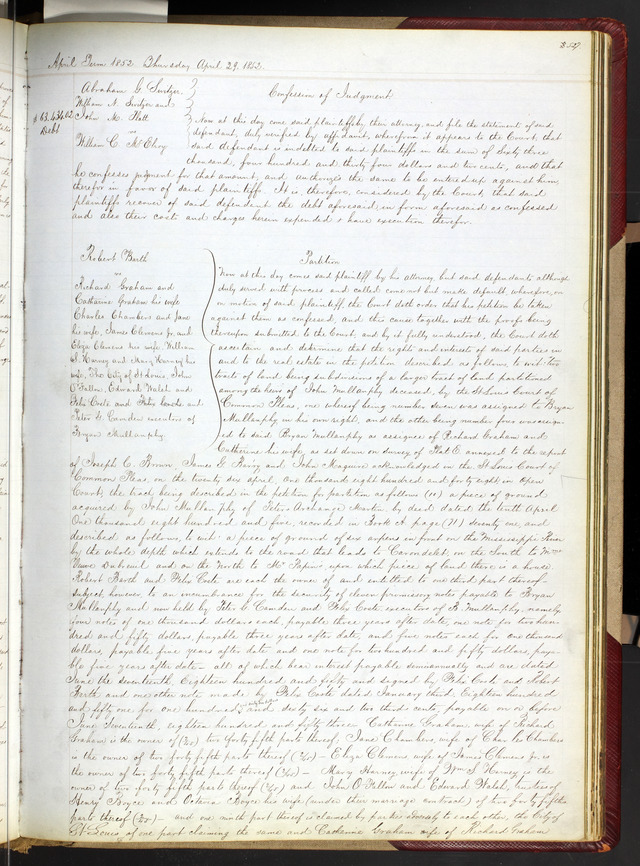 357
April Term 1852 Thursday April 29. 1852.
Abraham G Switzer
William N. Switzer and
John M. Platt
vs
William C. McElroy
$63,434.02
Debt
Confession of Judgment
Now at this day come said plaintiffs by their attorney, and file the statement of said
defendant, duly verified by affidavit, wherefrom it appears to the Court, that
said defendant is indebted to said plaintiffs in the sum of Sixty three
thousand, four hundred and thirty four dollars and two cents, and that
he confesses judgment for that amount, and authorizes the same to be entered up against him
therefor in favor of said plaintiffs. It is, therefore, considered by the Court, that said
plaintiffs recover of said defendant the debt aforesaid in form aforesaid as confessed
and also their costs and charges herein expended & have execution therefor.
Robert Barth
vs
Richard Graham and
Catharine Graham his wife
Charles Chambers and Jane
his wife, James Clemens jr. and
Eliza Clemens his wife, William
S. Harney and Mary Harney his
wife, The City of St Louis, John
O'Fallon, Edward Walsh and
Felix Coste and Felix Coste and
Peter G. Camden executors of
Bryan Mullanphy
Partition
Now at this day comes said plaintiff by his attorney, but said defendants although
duly served with process and called come not but make default, wherefore, on
on motion of said plaintiff, the Court doth order that his petition be taken
against them as confessed, and this cause together with the proofs being
thereupon submitted to the Court, and by it fully understood, the Court doth
ascertain and determine that the rights and interests of said parties in
and to the real estate in the petition described, as follows, to wit: two
tracts of land being subdivisions of a larger tract of land partitioned
among the heirs of John Mullanphy deceased, by the St Louis Court of
Common Pleas, one whereof being number seven was assigned to Bryan
Mullanphy in his own right, and the other being number four was assign-
ed to said Bryan Mullanphy as assignee of Richard Graham and
Catherine his wife, as set down on survey of Plat E annexed to the report
of Joseph C. Brown, James G. Barry and John Maguire acknowledged in the St Louis Court of
Common Pleas, on the twenty six april, one thousand eight hundred and forty eight, in open
Court, the tract being described in the petition for partition as follows (10) a piece of ground
acquired by John Mullanphy of Peter Archange Martin by deed dated the tenth April
One thousand eight hundred and five, recorded in Book A page (71) seventy one, and
described as follows, to wit: a piece of ground of six arpens in front on the Mississippi River
by the whole depth which extends to the road that leads to Carondelet, on the South to Mme
Veuve Dubreuil and on the North to Mr Papin, upon which piece of land there is a house.
Robert Barth and Felix Coste are each the owner of and entitled to one third part thereof
subject, however to an incumbrance for the security of eleven promissory notes payable to Bryan
Mullanphy and now held by Peter G. Camden and Felix Coste executors of B Mullanphy, namely
four notes of one thousand dollars each, payable three years after date, one note for two hun-
dred and fifty dollars, payable three years after date, and five notes each for one thousand
dollars, payable five years after date and one note for two hundred and fifty dollars, paya-
ble five years after date all of which bear interest payable semiannually and are dated
June the seventeenth, Eighteen hundred and fifty and signed by Felix Coste and Robert
Barth and one other note made by Felix Coste dated January third, Eighteen hundred
and fifty one for one hundred and sixty six and two third cents, payable on or before
June Seventeenth, eighteen hundred and fifty three. Catherine Graham, wife of Richard
Graham is the owner of two forty fifth parts thereof, Jane Chambers, wife of Charles Chambers
is the owner of two forty fifth parts thereof (2/45) – Eliza Clemens wife of James Clemens jr. is
the owner of two forty fifth parts thereof (2/45) – Mary Harney, wife of Wm S. Harney is the
owner of two forty fifth parts thereof (2/45) and John O'Fallon and Edward Walsh, trustees of
Henry Boyce and Octavia Boyce his wife (under their marriage contract) of two forty fifths
parts thereof (2/45) and one ninth part thereof is claimed by parties adversely to each other, the City of
St Louis of one part claiming the same and Catharine Graham wife of Richard Graham